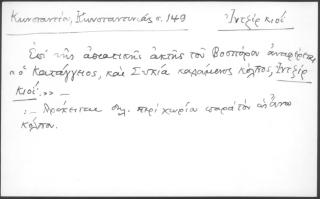 Κωνσταντίου, Κωνσταντινιάς σ. 149 Ἰντζίρ κιοϊ
Ἐπὶ τῆς ἀσιατικῆς ἀκτῆς τοῦ Βοσπόρου ἀναφέρεται
"ὁ Κατάγγειος, καὶ Συκία καλούμενος κόλπος, Ἰντζίρ
Κιοϊ." —
:— Πρόκειται δηλ. περὶ χωρίου παρὰ τὸν ὡς ἄνω
κόλπον.